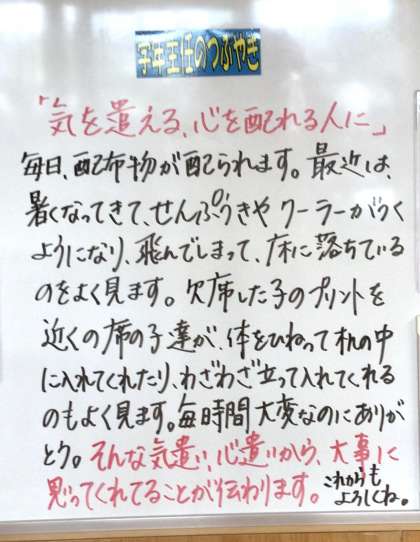 学年主任のつぶやき
「気を遣える、心を配れる人に」
毎日、配布物が配られます。最近は、
暑くなってきて、せんぷうきやクーラーがつく
ようになり、飛んでしまって、床に落ちている
のをよく見ます。欠席した子のプリントを
近くの席の子達が、体をひねって机の中
に入れてくれたり、わざわざ立って入れてくれる
のもよく見ます。毎時間大変なのにありが
とう。そんな気遣い、心遣いから、大事に
思ってくれてることが伝わります。これからも
よろしくね。